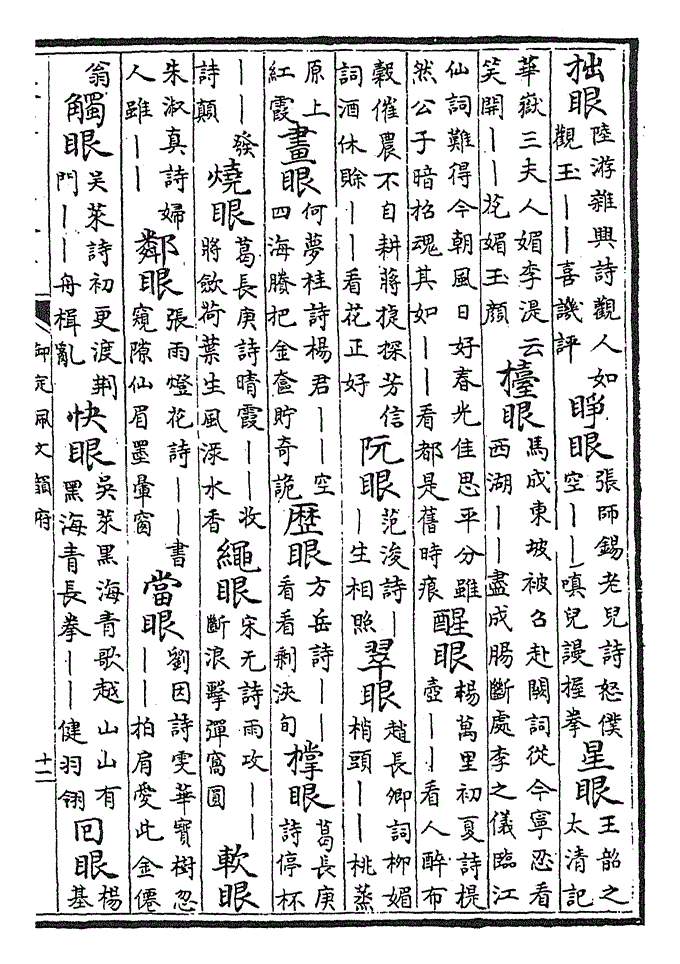 拙眼陸游雜興詩觀人如觀玉——喜譏評睜眼張師錫老兒詩怒僕空——嗔兒謾握拳星眼王韶之太清記
華嶽三夫人媚李湜云笑開——花媚玉顔檯眼馬成東坡被召赴闕詞從今寧忍看西湖——盡成腸斷處李之儀臨江
仙詞難得今朝風日好春光佳思平分雖然公子暗招魂其如——看都是舊時痕醒眼楊萬里初夏詩提壺——看人醉布
穀催農不自耕蔣捷探芳信詞酒休賒——看花正好阮眼范浚詩——生相照翠眼趙長卿詞柳媚梢頭——桃蒸
原上紅霞畫眼何夢桂詩楊君——空四海賸把金奩貯奇詭歴眼方岳詩——看看剩浹旬撑眼葛長庚詩停杯
——發詩顛燒眼葛長庚詩晴霞——收將歛荷葉生風渌水香繩眼宋无詩雨攻——斷浪擊彈窩圓軟眼
朱淑真詩婦人雖——鄰眼張雨燈花詩——書窺隙仙眉墨暈窗當眼劉因詩雯華寶樹忽——拍肩愛此金僊
翁觸眼吳萊詩初更渡荆門——舟楫亂快眼吳萊黑海青歌越山山有黑海青長拳——健羽翎回眼楊基
御定佩文韻府
十二